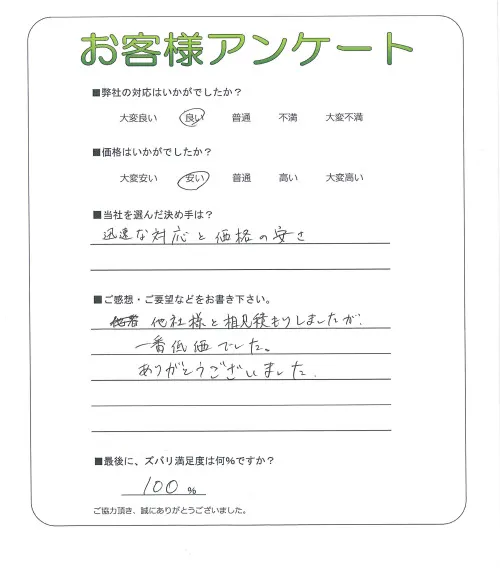 お客様アンケート
■弊社の対応はいかがでしたか？
大変良い 良い 普通 不満 大変不満
■価格はいかがでしたか？
大変安い 安い 普通 高い 大変高い
■当社を選んだ決め手は？
迅速な対応と価格の安さ
■ご感想・ご要望などをお書き下さい。
他社様と相見積もりしましたが、
一番低価でした。
ありがとうございました。
■最後に、ズバリ満足度は何%ですか？
100 %
ご協力頂き、誠にありがとうございました。